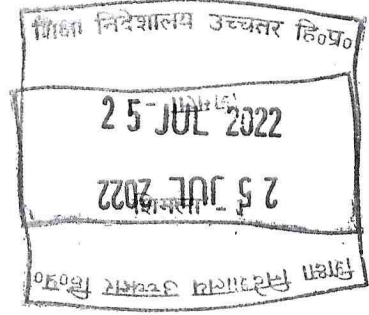 शिक्षा निदेशालय उच्चतर हि०प्र०
25 JUL 2022
25 JUL 2022
शिमला
शिक्षा निदेशालय उच्चतर हि०प्र०